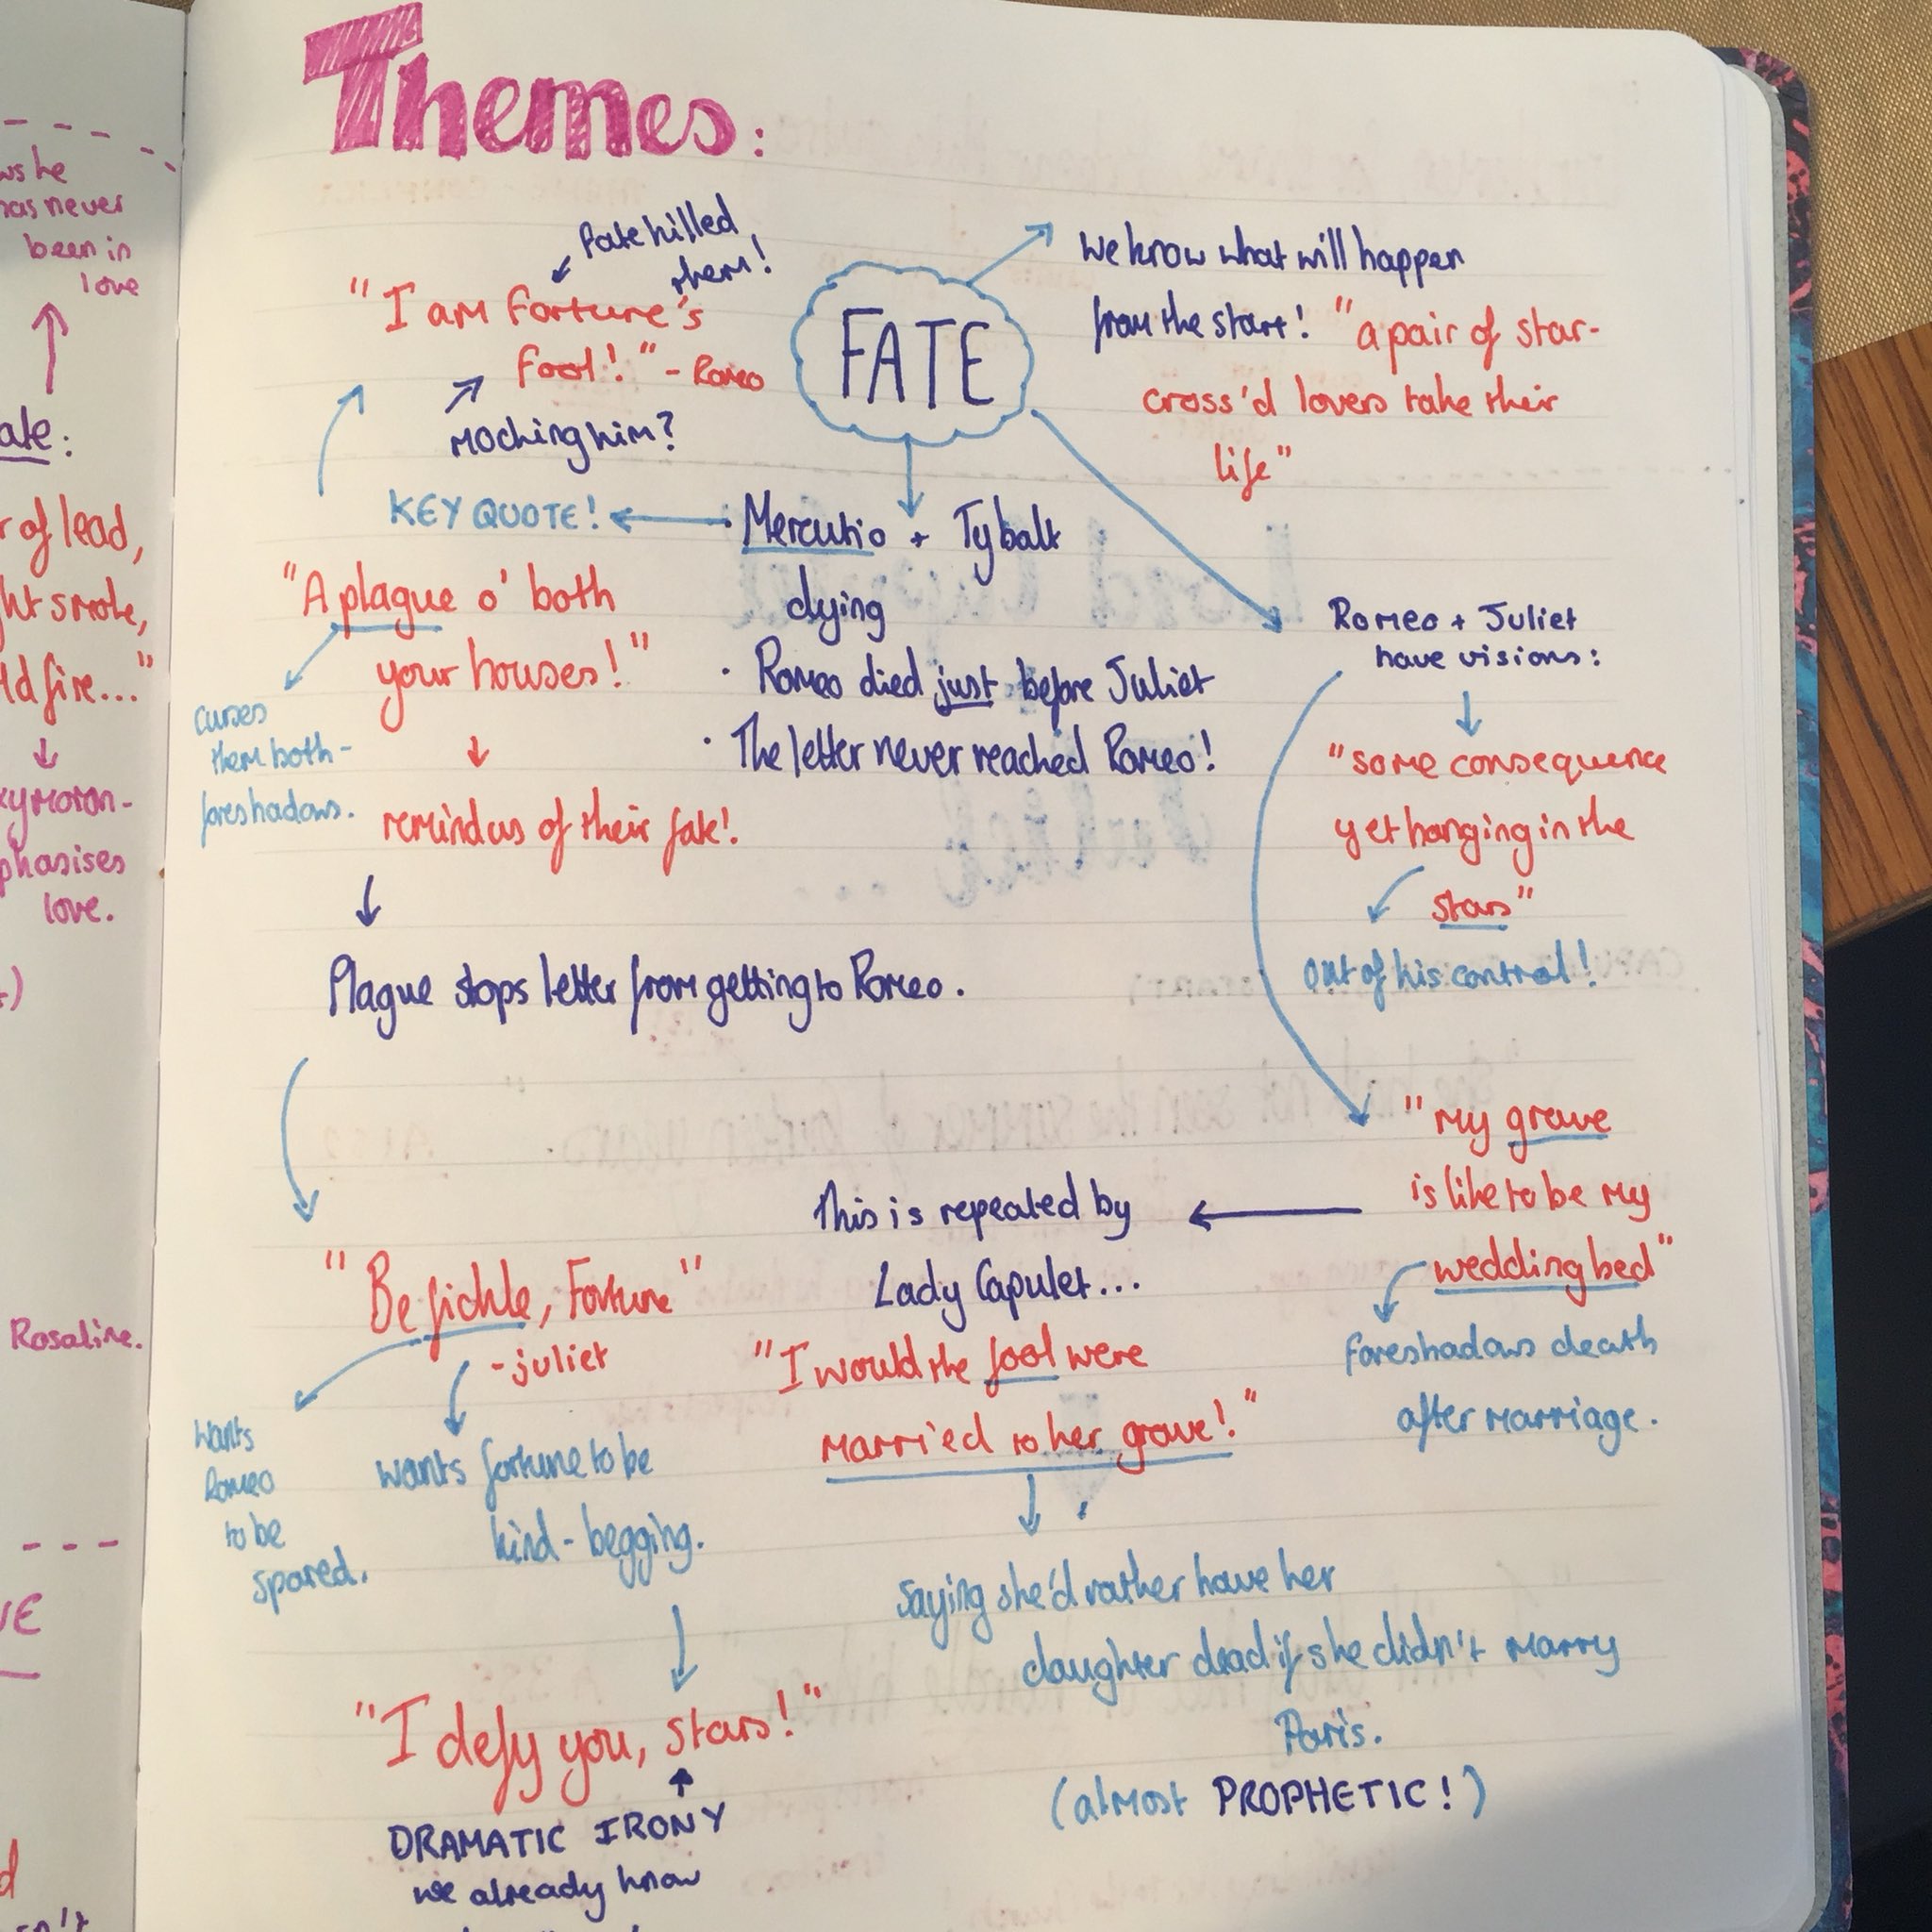 ws he
has never
been in
love
ate:
r of lead,
ht smoke,
ld fire..."
xymoron-
phasises
love.
Rosaline.
VE
Themes:
fate killed
them!
"I am fortune's
fool!" - Romeo
mocking him?
FATE
we know what will happen
from the start! "a pair of star-
cross'd lovers take their
life"
KEY QUOTE!
· Mercutio + Tybalt
dying
· Romeo died just before Juliet
· The letter never reached Romeo!
"A plague o' both
your houses!"
curses
them both -
foreshadows.
reminds us of their fate!
Plague stops letter from getting to Romeo.
Romeo + Juliet
have visions:
"some consequence
yet hanging in the
stars"
out of his control!
"my grave
is like to be my
wedding bed"
foreshadows death
after marriage.
This is repeated by
Lady Capulet...
"I would the fool were
married to her grave!"
saying she'd rather have her
daughter dead if she didn't marry
Paris.
(almost PROPHETIC!)
"Be fickle, Fortune"
- juliet
wants
Romeo
to be
spared.
wants fortune to be
kind - begging.
"I defy you, stars!"
DRAMATIC IRONY
we already know